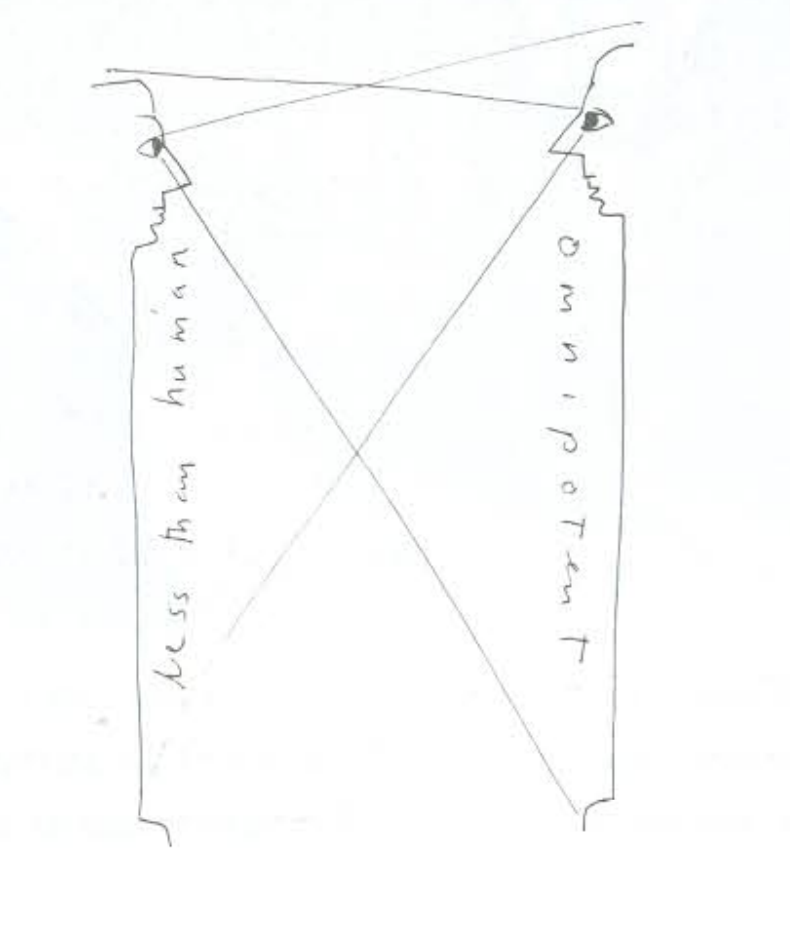 less than human
omnipotent